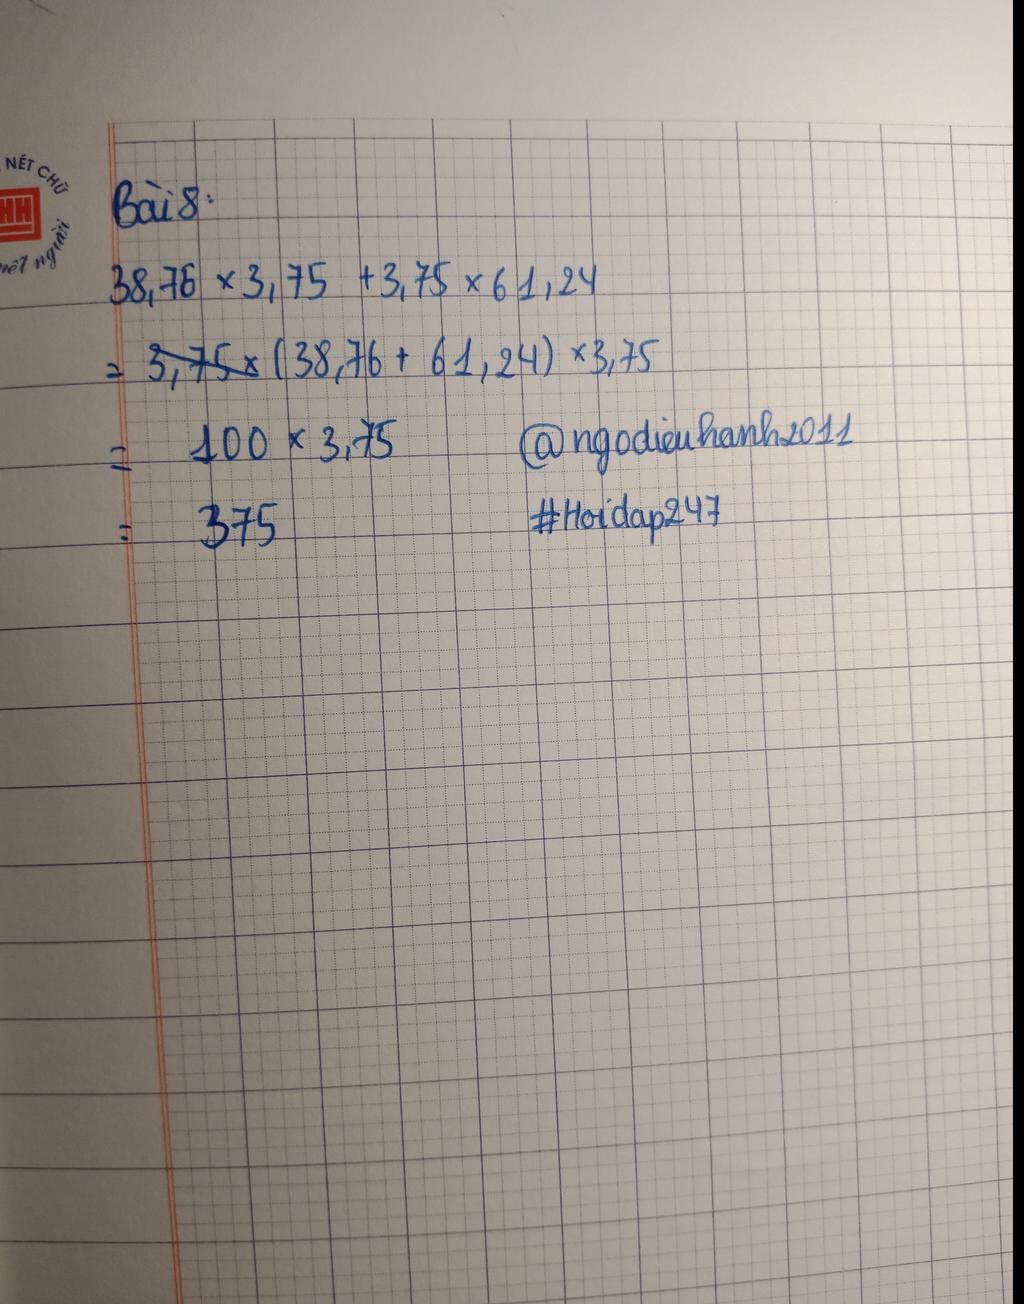 NÉT CHỮ
HH
nết người
Bài 8:
38,76 × 3,75 + 3,75 × 61,24
= 3,75 × (38,76 + 61,24) × 3,75
= 100 × 3,75
@ngodieuhanh2011
= 375
#Hoidap247